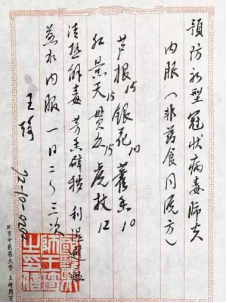 预防新型冠状病毒肺炎
内服（非药食同源方）
芦根15 银花10 藿香10
红景天15 贯众15 虎杖12
清热解毒 芳香辟秽 利湿
煎水内服 一日二～三次
王琦
北京中医药大学 王琦